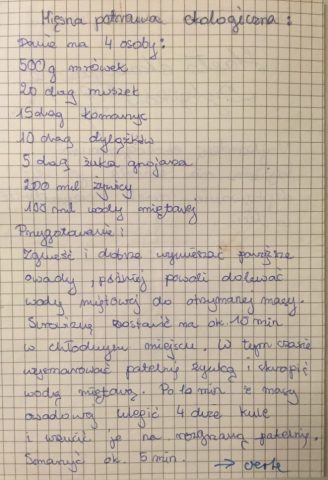 Mięsna potrawa ekologiczna:
Danie na 4 osoby:
500g mrówek
20 dag muszek
15 dag komarzyc
10 dag dylążków
5 dag żuka gnojaza
200 ml żywicy
100 ml wody miętowej
Przygotowanie:
Zgnieść i dobrze wymieszać powyższe
owady, później powoli dolewać
wody miętowej do otrzymanej masy.
Surowiznę zostawić na ok. 10 min
w chłodnym miejscu. W tym czasie
wysmarować patelnię żywicą i skropić
wodą miętową. Po 10 min z masy
owadowej ulepić 4 duże kule
i wrzucić je na rozgrzaną patelnię.
Smażyć ok. 5 min. → verte